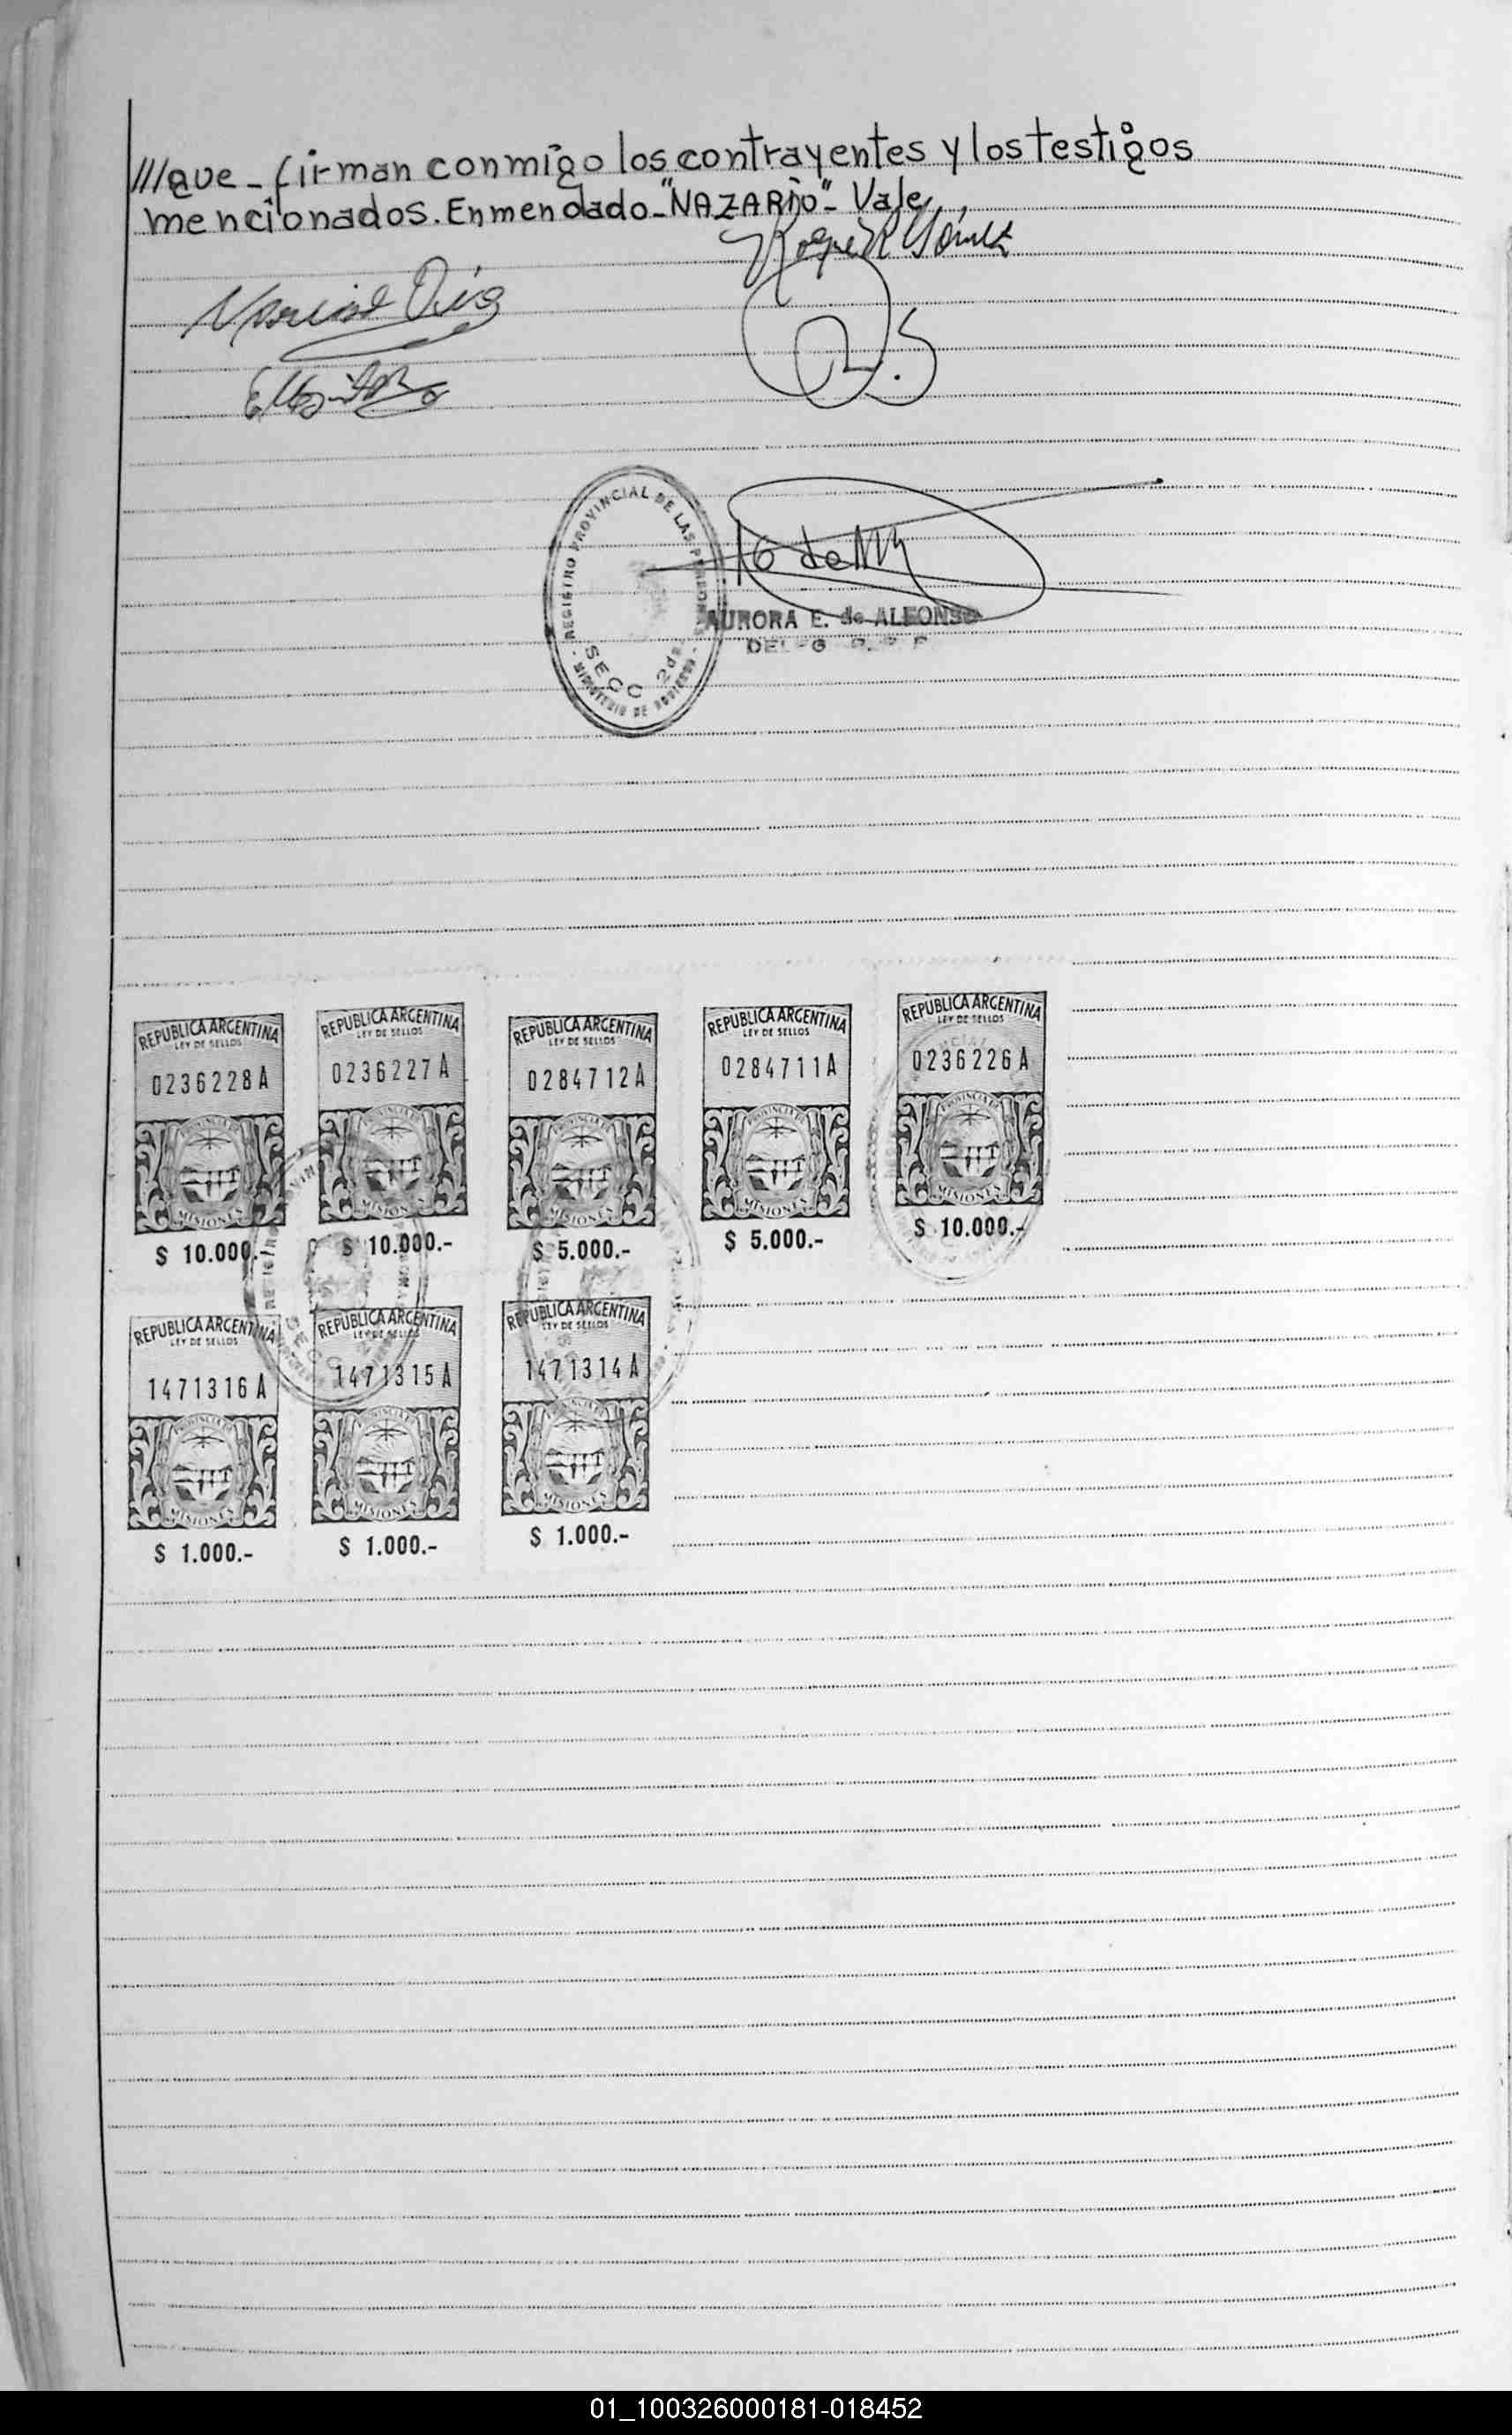 ///que - firman conmigo los contrayentes y los testigos
mencionados. Enmendado - "NAZARIO" - Vale
REGISTRO PROVINCIAL DE LAS PERSONAS
SECC 2da
MINISTERIO DE GOBIERNO
AURORA E. de ALFONSO
REPUBLICA ARGENTINA
LEY DE SELLOS
0236228 A
MISIONES
$ 10.000.-
REPUBLICA ARGENTINA
LEY DE SELLOS
0236227 A
MISIONES
$ 10.000.-
REPUBLICA ARGENTINA
LEY DE SELLOS
0284712 A
MISIONES
$ 5.000.-
REPUBLICA ARGENTINA
LEY DE SELLOS
0284711 A
MISIONES
$ 5.000.-
REPUBLICA ARGENTINA
LEY DE SELLOS
0236226 A
MISIONES
$ 10.000.-
REPUBLICA ARGENTINA
LEY DE SELLOS
1471316 A
MISIONES
$ 1.000.-
REPUBLICA ARGENTINA
LEY DE SELLOS
1471315 A
MISIONES
$ 1.000.-
REPUBLICA ARGENTINA
LEY DE SELLOS
1471314 A
MISIONES
$ 1.000.-
01_100326000181-018452